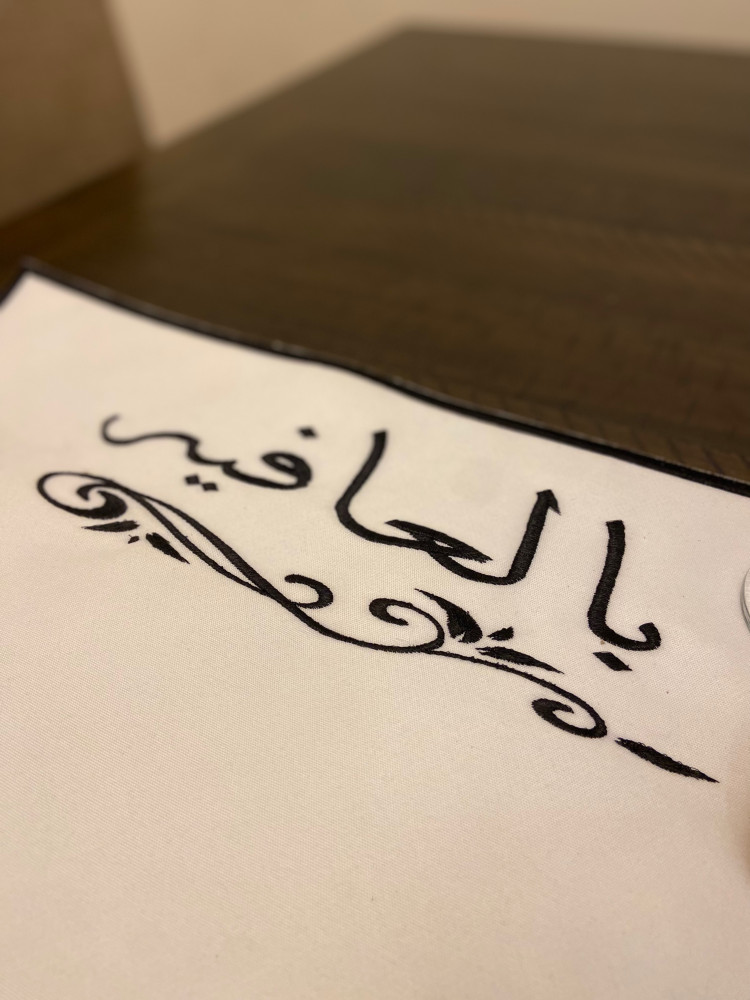 بالعافيه